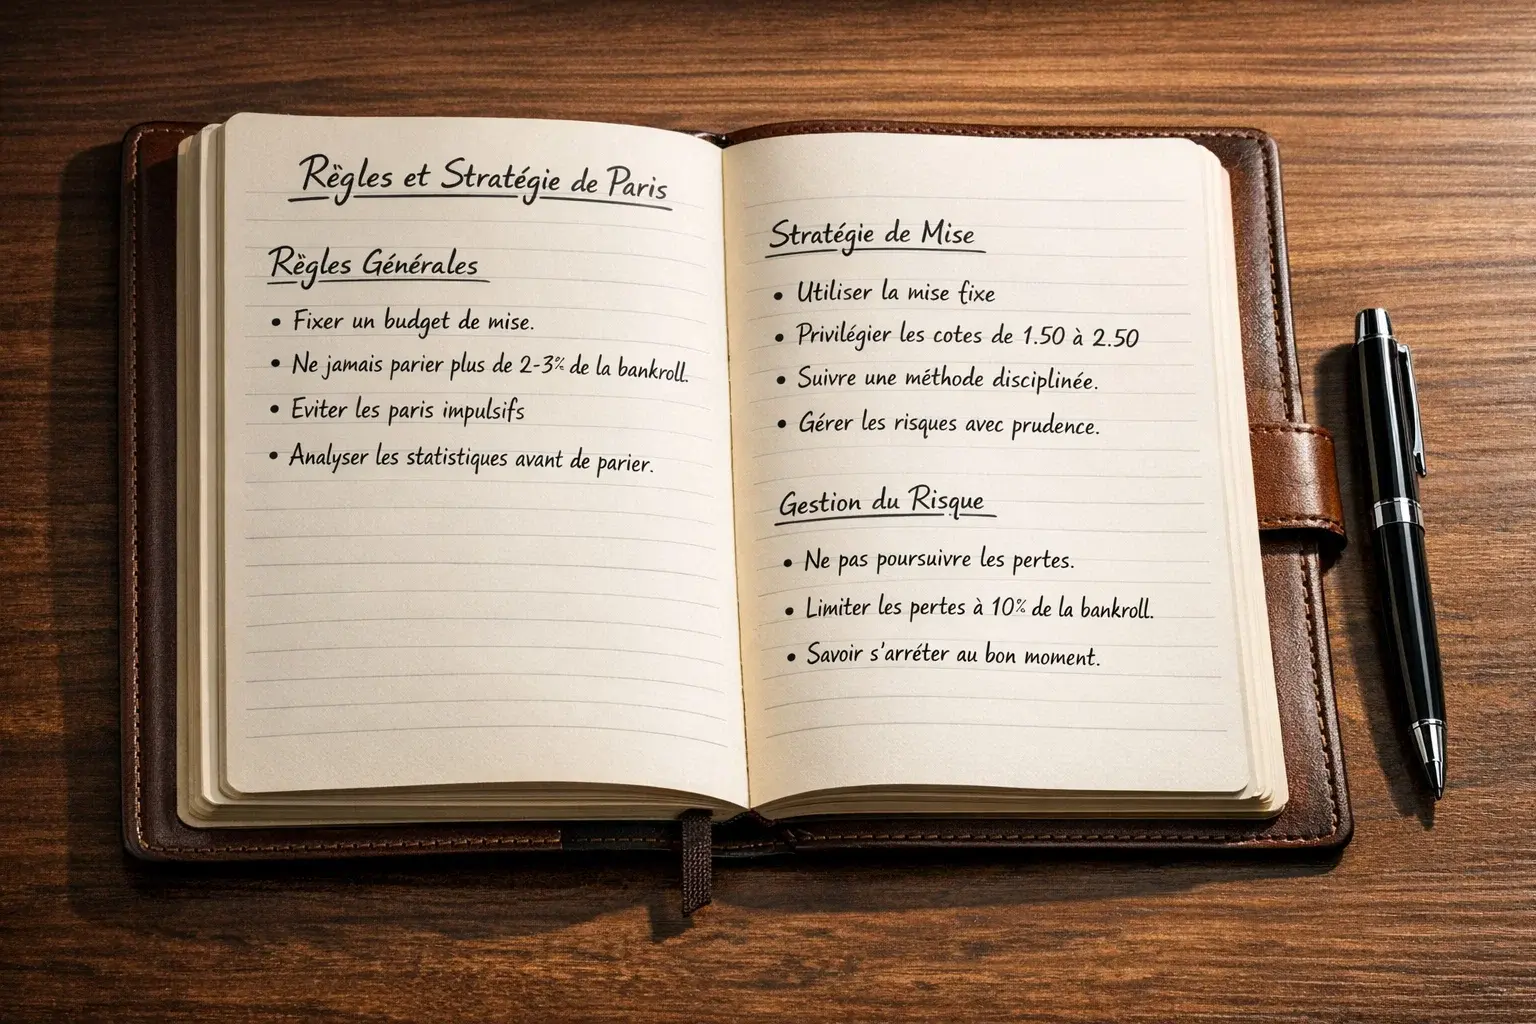 Règles et Stratégie de Paris
Règles Générales
• Fixer un budget de mise.
• Ne jamais parier plus de 2-3% de la bankroll.
• Eviter les paris impulsifs
• Analyser les statistiques avant de parier.
Stratégie de Mise
• Utiliser la mise fixe
• Privilégier les cotes de 1.50 à 2.50
• Suivre une méthode disciplinée.
• Gérer les risques avec prudence.
Gestion du Risque
• Ne pas poursuivre les pertes.
• Limiter les pertes à 10% de la bankroll.
• Savoir s'arréter au bon moment.